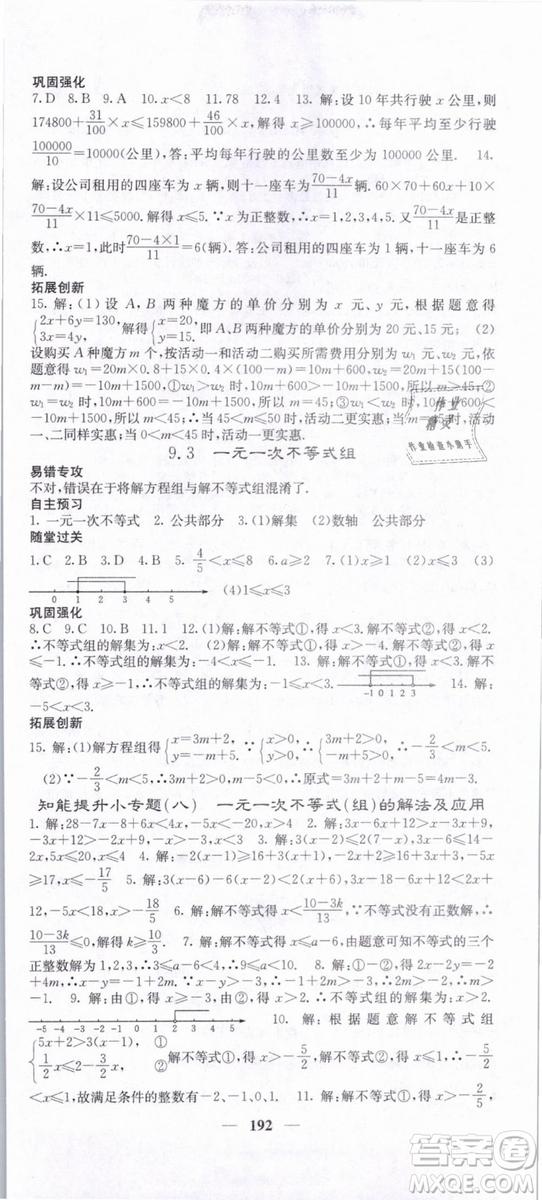 巩固强化
7.D 8.B 9.A 10.x<8 11.78 12.4 13. 解:设 10 年共行驶 x 公里,则
174800+31/100×x≤159800+46/100×x,解得:x≥100000,∴每年平均行驶
100000/10=10000(公里),答:平均每年行驶的公里数至少为10000公里. 14.
解:设公司租用的四座车为x辆,则十一座车为(70-4x)/11辆. 60×70+60x+10×
(70-4x)/11×11≤5000. 解得:x≤5. 又∵x为正整数,∴x=1,2,3,4,5. 又(70-4x)/11是正整
数,∴x=1,此时(70-4×1)/11=6(辆). 答:公司租用的四座车为1辆,十一座车为6
辆.
拓展创新
15. 解:(1) 设 A,B 两种魔方的单价分别为 x 元、y 元,根据题意可得
{2x+6y=130, 3x=4y, 解得{x=20, y=15. 答:A、B两种魔方的单价分别为20元、15元; (2)
设购买A种魔方m个,按活动一和活动二购买所需费用分别为w₁元、w₂元,依
题意得w₁=20m×0.8+15×0.4×(100-m)=10m+600,w₂=20m+15(100-
m-m)=-10m+1500,①w₁>w₂时,10m+600>-10m+1500,所以m>45;②
w₁=w₂时,10m+600=-10m+1500,所以m=45;③w₁<w₂时,10m+600<
-10m+1500,所以m<45;当m<45时,活动一更实惠;当m=45时,活动
一、二同样实惠;当m>45时,活动二更实惠.
9.3 一元一次不等式组
易错专攻
不对,错误在于将解方程组与解不等式组混淆了.
自主预习
1. 一元一次不等式 2. 公共部分 3. (1)解集 (2)数轴 公共部分
随堂过关
1.C 2.B 3.D 4.B 5. 4/5<x≤8 6.a≥2 7.(1)x≥1 (2)x≤3 (3)
0 1 2 3 4 5 (4)1≤x≤3
巩固强化
8.C 9.C 10.B 11.1 12.(1)解:解不等式①,得x<3. 解不等式②,得x<2.
∴不等式组的解集为x<2. (2)解:解不等式①,得x≤-1. 解不等式②,得x<6. ∴
不等式组的解集为x≤-1. 13. 解:不等式组的解集为-1<x≤3.
-1 0 1 2 3 14. 解:
-5<x<3.
拓展创新
15. 解:(1)解方程组得{x=3m+2, y=4-m, ∵{x>0, y>0, ∴{3m+2>0, 4-m>0, 解得:-2/3<m
<5. (2)∵-2/3<m<5,∴3m+2>0,m-5<0,∴原式=3m+2+5-m=2m+7.
知能提升小专题(八) 一元一次不等式(组)的解法及应用
1. 解:28-7x-8+6x>4x,-5x>-20,x<4. 2. 解:3x-6x+12>3x-12x+9,
-3x+12>-9x+9,6x>-3,x>-1/2. 3. 解:3(x-6)+6≤2(7x-1),3x-12
≤14x-2,-11x≤10,x≥-10/11. 4. 解:2(2x-1)-3(3x+1)≤12,-5x≤17,
x≥-17/5. 5. 解:3(x-6)-6(x-2)<2(x+6)+12,3x-18-6x+12<2x+12+
12,-5x<18,x>-18/5. 6. 解:解不等式得x<(10-3k)/13,∵不等式没有正数解,
∴(10-3k)/13≤0,解得k≥10/3. 7. 解:解不等式得x<4-a,由题意可知不等式的三个
正整数解为1,2,3,∴3<4-a≤4,∴0≤a<1. 8. 解:由①得x≥-1,由②得x<3,∴
-1≤x<3. 9. 解:由①得x>-3,由②得x≥2,所以不等式组的解集为x≥2.
-5 -4 -3 -2 -1 0 1 2 3 4 5 10. 解:根据题意解不等式组
{5x+2>3(x-1), ① 1/2x≤2-3/2x, ② 解不等式①,得x>-5/2,解不等式②,得x≤1,∴-5/2
<x≤1,故满足条件的整数有-2、-1、0、1.
192
作业
精灵
作业检查小助手
答案圈
MXQE.COM